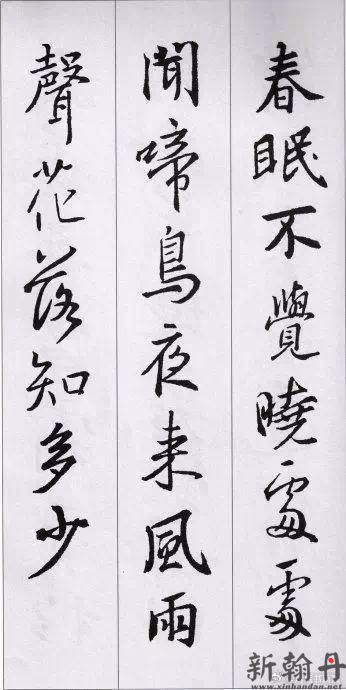 春眠不覺曉處處
聞啼鳥夜来風雨
聲花落知多少
新翰丹
www.xinhandan.net